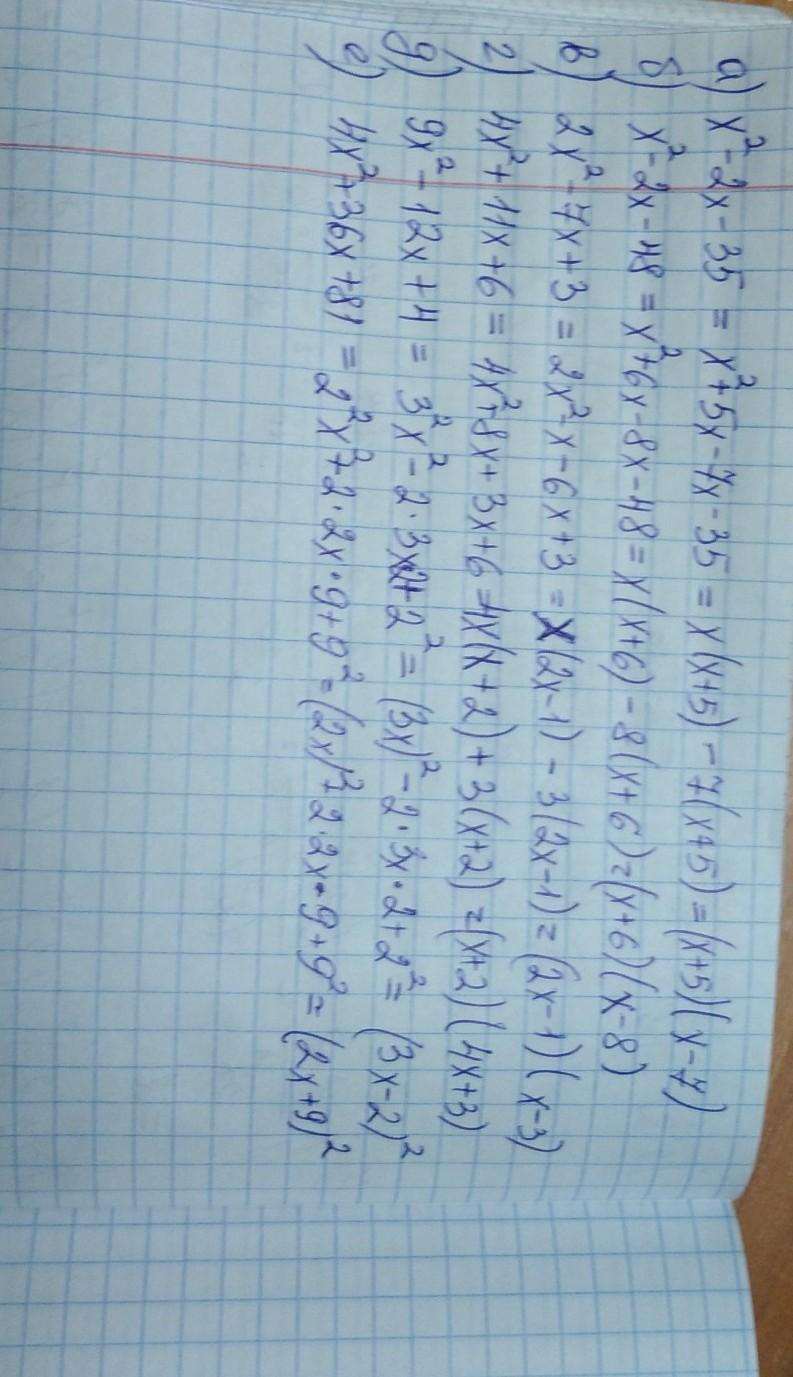 а) x²-2x-35 = x²+5x-7x-35 = x(x+5) -7(x+5) = (x+5)(x-7)
б) x²-2x-48 = x²+6x-8x-48 = x(x+6) -8(x+6) = (x+6)(x-8)
в) 2x²-7x+3 = 2x²-x-6x+3 = x(2x-1) -3(2x-1) = (2x-1)(x-3)
г) 4x²+11x+6 = 4x²+8x+3x+6 = 4x(x+2)+3(x+2) = (x+2)(4x+3)
д) 9x²-12x+4 = 3²x²-2·3x·2+2² = (3x)²-2·3x·2+2² = (3x-2)²
е) 4x²+36x+81 = 2²x²+2·2x·9+9² = (2x)²+2·2x·9+9² = (2x+9)²